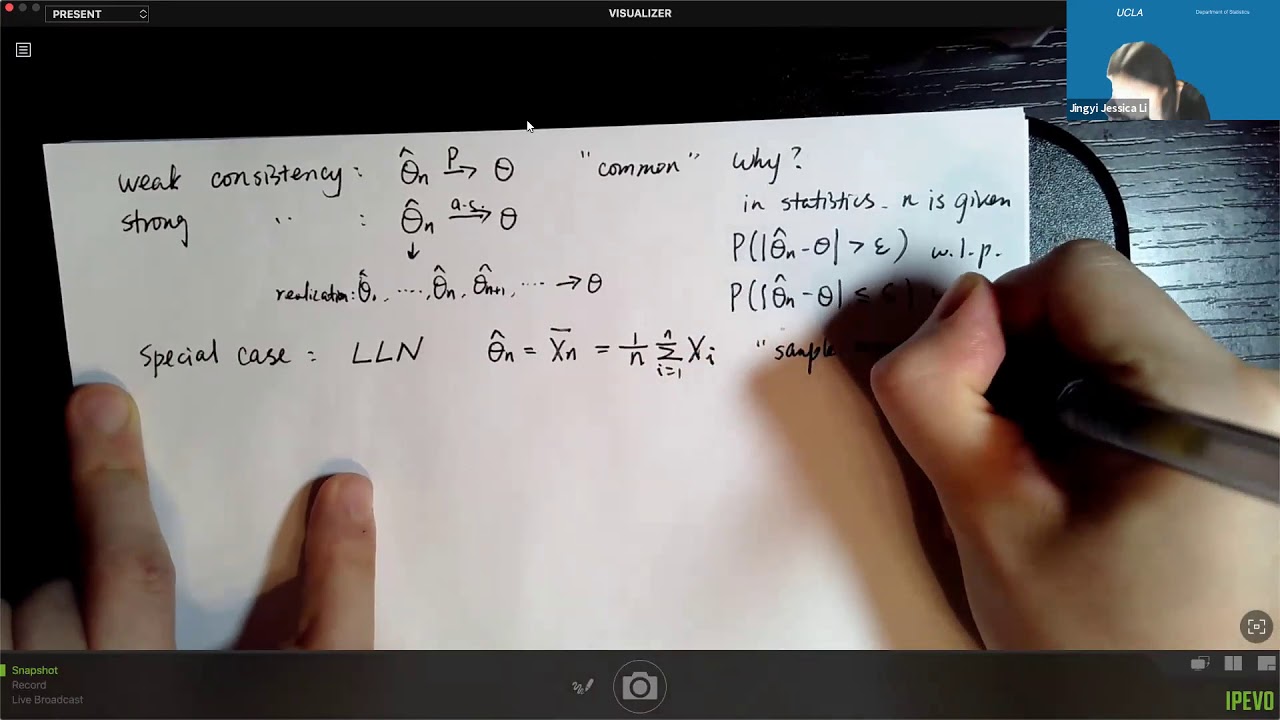 PRESENT
VISUALIZER
UCLA
Department of Statistics
Jingyi Jessica Li
weak consistency: θ̂n →P θ "common" Why?
in statistics. n is given
strong " : θ̂n →a.s. θ
P(|θ̂n - θ| > ε) w.l.p.
↓
realization: θ̂1, ...., θ̂n, θ̂n+1, .... → θ
P(|θ̂n - θ| ≤ ε)
special case: LLN θ̂n = X̄n = 1/n Σ_{i=1}^{n} Xi "sample
Snapshot
Record
Live Broadcast
IPEVO